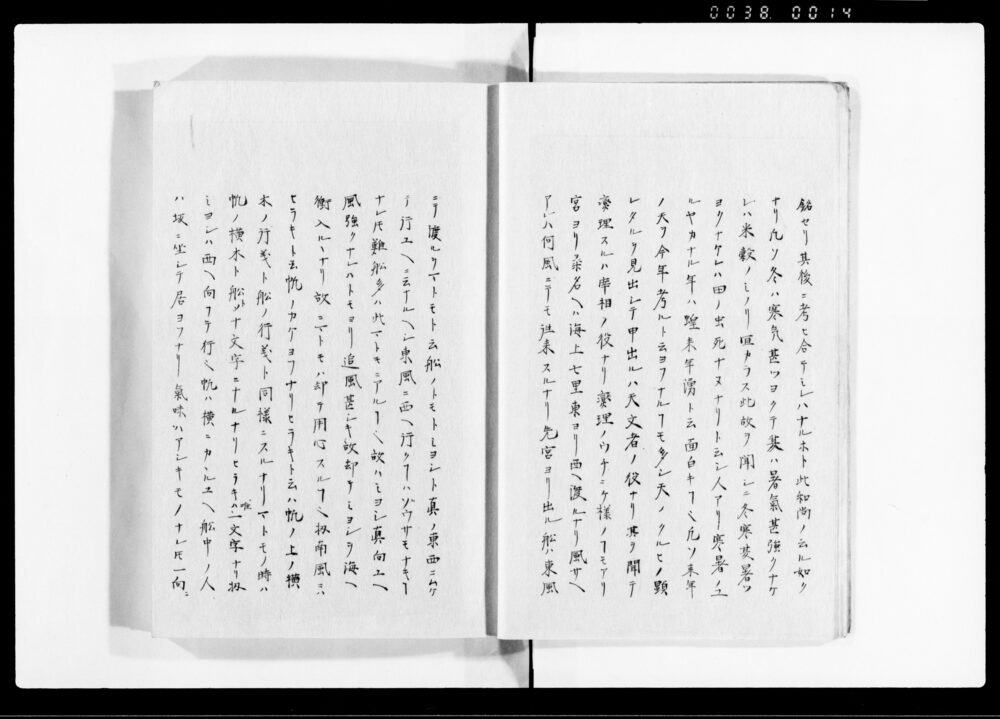 0038 0014
銘セリ其後ニ考ヒ合テミレハナルホト此和尚ノ云ル如ク
ナリ凡ソ冬ハ寒気甚ツヨクテ夏ハ暑氣甚強クナケ
レハ米穀ノミノリ宜カラス此故ヲ聞シニ冬寒夏暑ツ
ヨクナケレハ田ノ虫死ナヌナリト云シ人アリ寒暑ノユ
ルヤカナル年ハ蝗来年湧ト云面白キヿ也凡ソ来年
ノ天ヲ今年考ルト云ヨフナルヿモ多シ天ノクルヒノ顕
レタルヲ見出シテ申出ルハ天文者ノ役ナリ其ヲ聞テ
燮理スルハ宰相ノ役ナリ燮理ノウチニケ様ノヿモアリ
宮ヨリ桑名ヘハ海上七里東ヨリ西ヘ渡ルナリ風サヘ
アレハ何風ニテモ往来スルナリ先宮ヨリ出ル船ハ東風
ニテ渡ルヲマトモト云船ノトモトミヨシト真ノ東西ニムケ
テ行ユヘニ云ナルヘシ東風ニ西ヘ行クヿハゾウサモナキヿ
ナレ𪜈難船多ハ此マトモニアルヿ也故ハミヨシ真向ユヘ
風強クナレハトモヨリ追風甚シキ故却テミヨシヲ海ヘ
衝入ルヽナリ故ニマトモハ却テ用心スルヿ也扨南風ニハ
ヒラキト云帆ノカケヨフナリヒラキト云ハ帆ノ上ノ横
木ノ行義ト船ノ行義ト同様ニスルナリマトモノ時ハ
帆ノ横木ト船ト十文字ニナルナリヒラキハ唯一文字ナリ扨
ミヨシハ西ヘ向フテ行也帆ハ横ニカヽルユヘ船中ノ人
ハ坂ニ坐シテ居ヨフナリ氣味ハアシキモノナレ𪜈一向ニ